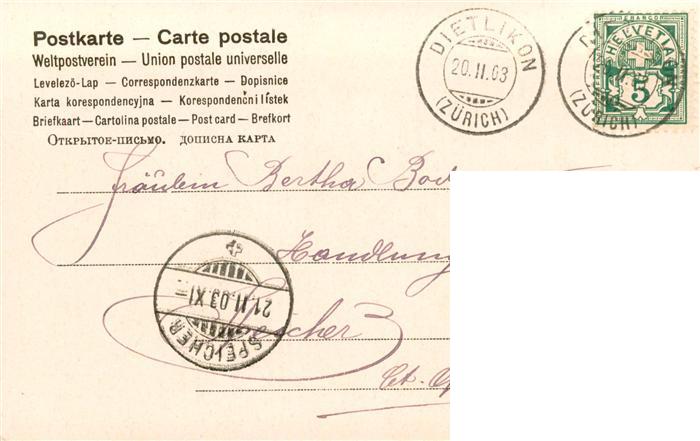 Postkarte — Carte postale
Weltpostverein — Union postale universelle
Levelező-Lap — Correspondenzkarte — Dopisnice
Karta korespondencyjna — Korespondenčni lístek
Briefkaart — Cartolina postale — Post card — Brefkort
Открытое-письмо. дописна карта
DIETLIKON
20.II.03
(ZÜRICH)
FRANCO
HELVETIA
5
(ZÜRICH)
Fräulein Bertha
Handlung
Speicher
Ct.
21.II.03.XI
SPEICHER